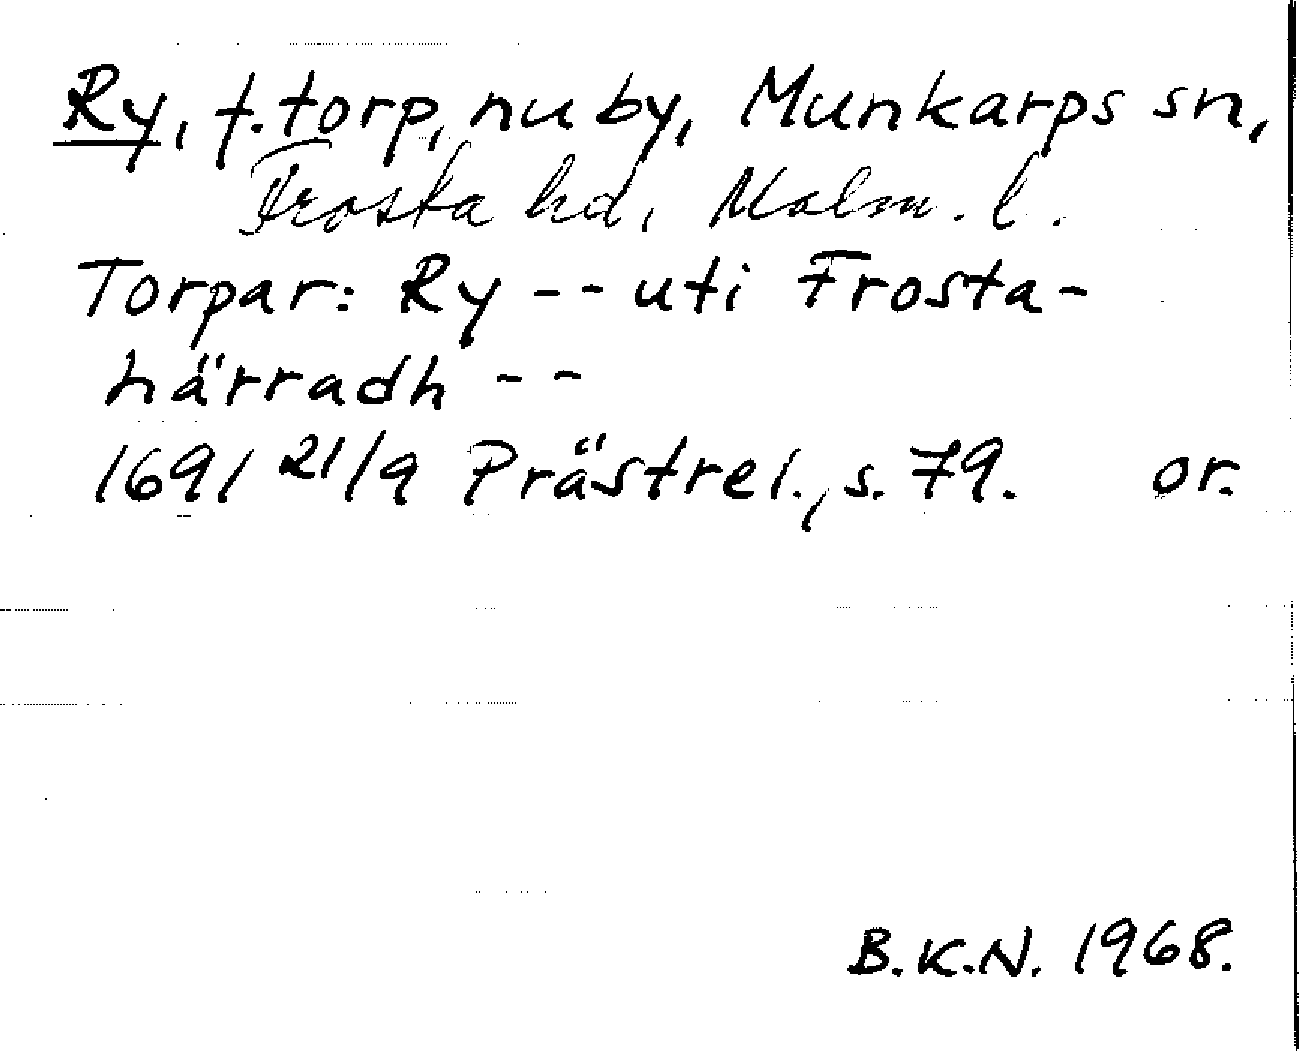 Ry, f. torp, nu by, Munkarps sn,
Frosta hd, Malm. l.
Torpar: Ry -- uti Frosta-
härradh --
1691 21/9 Prästrel., s. 79. or.
B.K.N. 1968.